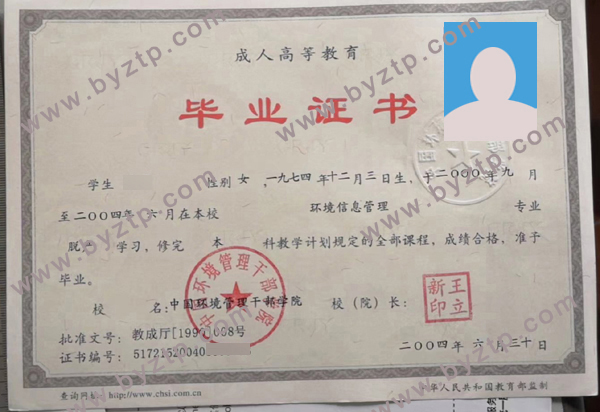 成人高等教育
毕业证书
学生 性别 女 ,一九七四年十二月三日生，于二〇〇〇年九月
至二〇〇四年六月在本校 环境信息管理 专业
脱产 学习，修完 本 科教学计划规定的全部课程，成绩合格，准予
毕业。
校 名:中国环境管理干部学院 校（院）长:
王立新印
批准文号: 教成厅[199 ]008号
证书编号: 5172152004
二〇〇四年 六 月 三十日
查询网址: http://www.chsi.com.cn
中华人民共和国教育部监制
中国环境管理干部学院
www.byztp.com
www.byztp.com
www.byztp.com
www.byztp.com
www.byztp.com